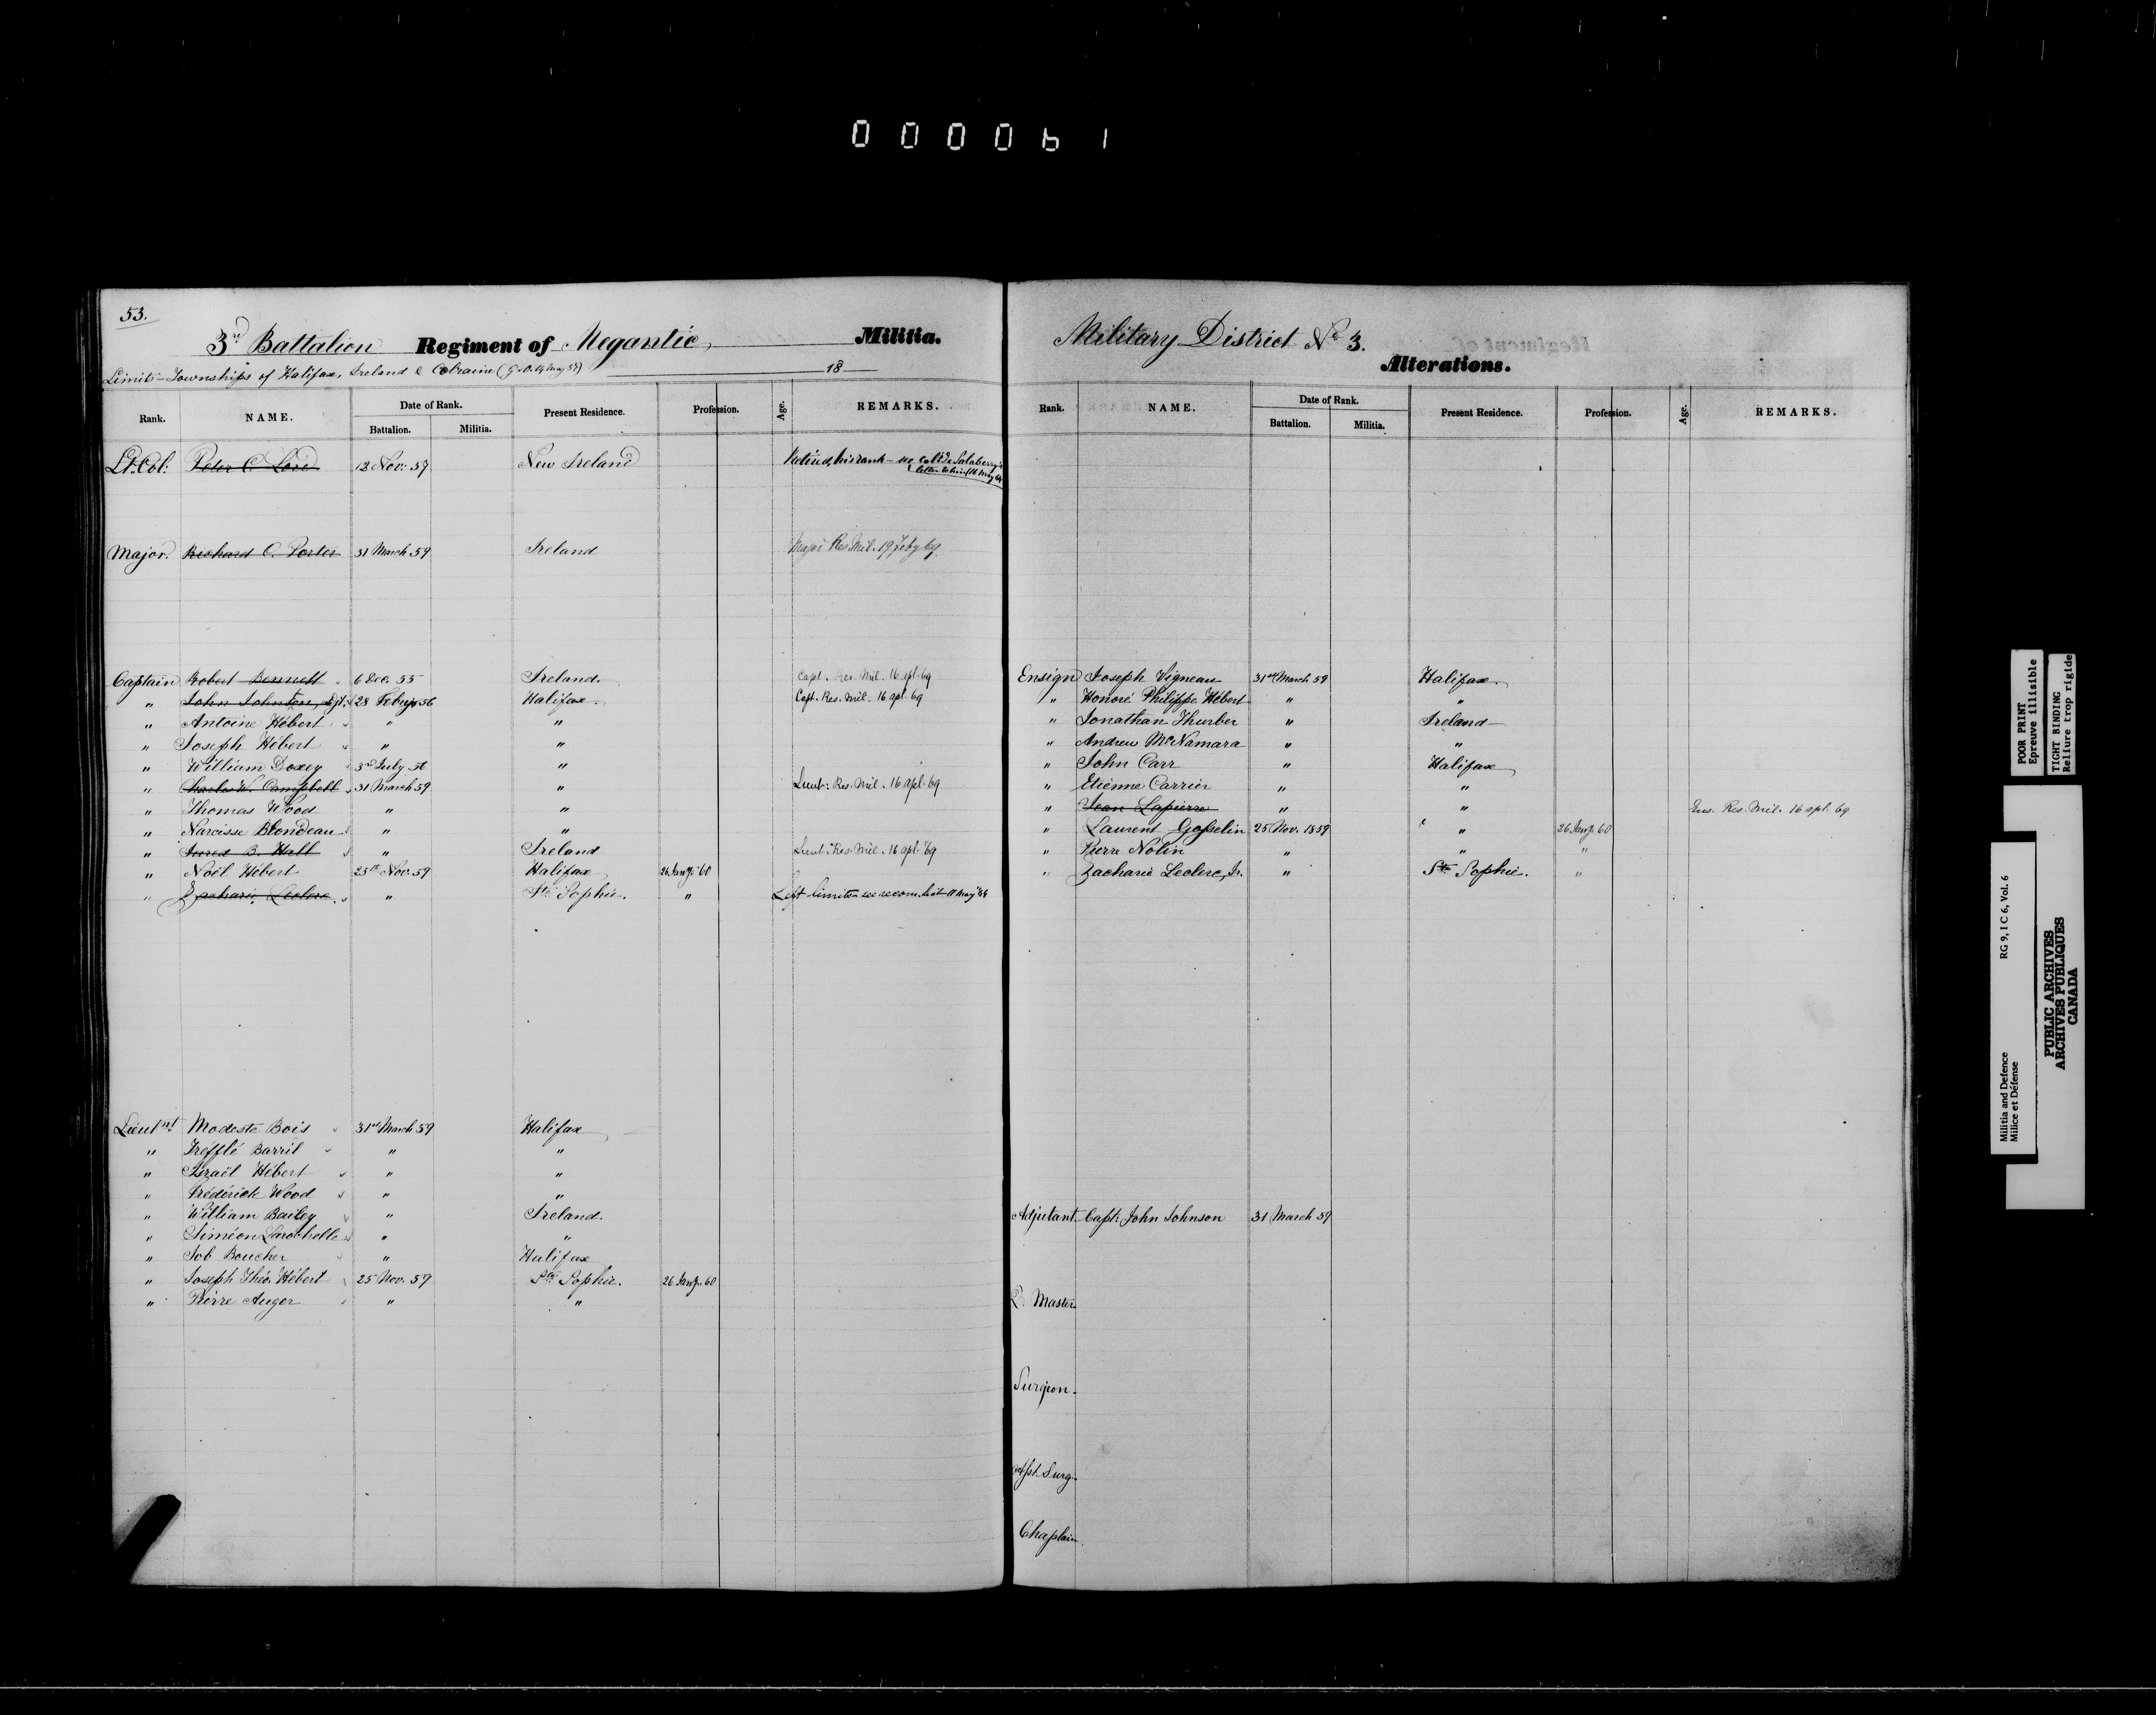 000061
53.
3rd Battalion Regiment of Megantic, Militia.
Limits - Townships of Halifax, Ireland & Colraine (G.O. 14 May 57) 18
Rank. NAME. Date of Rank. Battalion. Militia. Present Residence. Profession. Age. REMARKS.
Lt. Col: Peter C. Lord 12 Nov. 59 New Ireland Retired, his rank - see Col. De Salaberry's
letter to him (16 May 64
Major. Richard C. Porter 31 March 59 Ireland Major Res. Mil. 19 Feby 69.
Captain Robert Bennett 6 Dec. 55 Ireland. Capt. Res. Mil. 16 apl. 69
" John Johnson, Adjt. 28 Feby 56 Halifax. Capt. Res. Mil. 16 apl. 69
" Antoine Hébert " "
" Joseph Hébert " "
" William Doxey 3rd July 56 "
" Charles W. Campbell 31 March 59 " Lieut: Res. Mil. 16 apl. 69
" Thomas Wood " "
" Narcisse Blondeau " "
" Jared B. Hall " Ireland Lieut: Res. Mil. 16 apl. 69
" Noël Hébert 25th Nov. 59 Halifax 26 Jany. 60
" Zacharie Leclerc. " Ste Sophie. " Left limits see recom. list 11 May 64
Lieutnt Modeste Bois 31st March 59 Halifax
" Trefflé Barril " "
" Israël Hébert " "
" Frédérick Wood " "
" William Bailey " Ireland.
" Siméon Larochelle " "
" Job Boucher " Halifax
" Joseph Théo. Hébert 25 Nov. 59 Ste Sophie. 26 Jany. 60
" Pierre Auger " "
Military District No 3.
Alterations.
Rank. NAME. Date of Rank. Battalion. Militia. Present Residence. Profession. Age. REMARKS.
Ensign Joseph Vigneau 31st March 59 Halifax.
" Honoré Philippe Hébert " "
" Jonathan Thurber " Ireland
" Andrew McNamara " "
" John Carr " Halifax
" Etienne Carrier " "
" Jean Lapierre " " Ens. Res. Mil. 16 apl. 69
" Laurent Gosselin 25 Nov. 1859 " 26 Jany. 60
" Pierre Nolin " " "
" Zacharie Leclerc, Jr. " Ste Sophie. "
Adjutant. Capt: John Johnson 31 March 59
Qr. Master.
Surgeon.
Asst. Surg.
Chaplain.
POOR PRINT
Epreuve illisible
TIGHT BINDING
Reliure trop rigide
Militia and Defence RG 9, I C 6, Vol. 6
Milice et Défense
PUBLIC ARCHIVES
ARCHIVES PUBLIQUES
CANADA